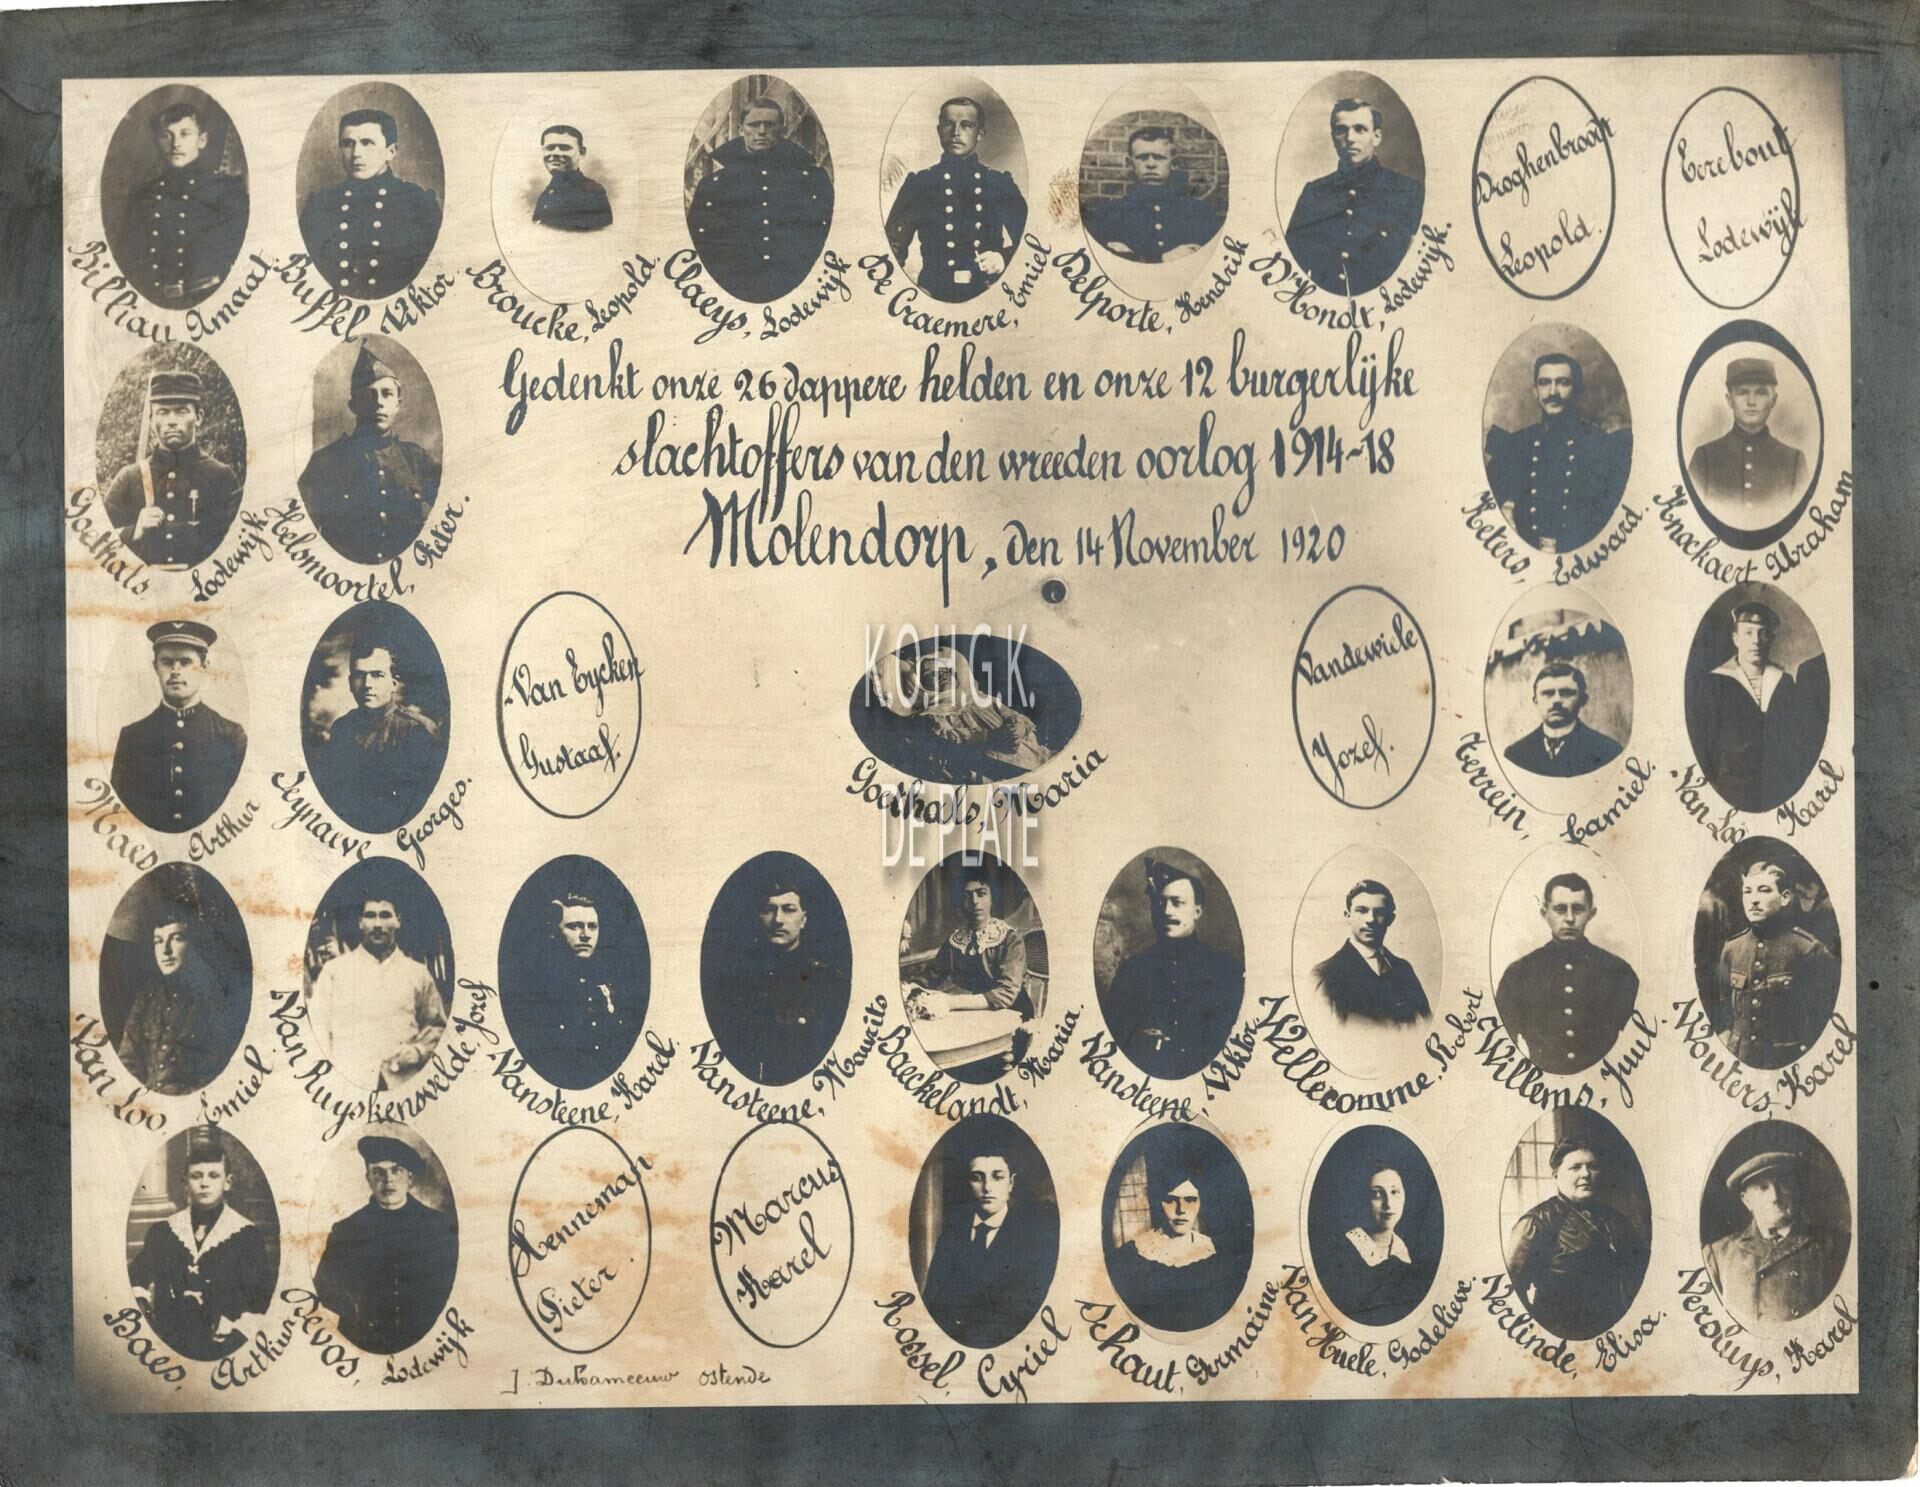 Billiau, Amaat.
Buffel, Viktor.
Broucke, Leopold.
Claeys, Lodewijk
De Craemere, Emiel
Delporte, Hendrik
D'Hondt, Lodewijk.
Droghenbroodt
Leopold.
Eerebout
Lodewijk
Gedenkt onze 26 dappere helden en onze 12 burgerlijke
slachtoffers van den wreeden oorlog 1914-18
Molendorp, den 14 November 1920
Goethals, Lodewijk
Helsmoortel, Pieter.
Keters, Edward.
Knockaert Abraham
Maes Arthur
Seynaeve Georges.
Van Eycken
Gustaaf.
K.O.H.G.K.
Goethals, Maria
DE PLATE
Vandewiele
Jozef.
Terrein, Camiel.
Van Loo Karel
Van Loo, Emiel.
Van Ruyskensvelde, Jozef
Vansteene, Karel.
Vansteene, Maurits
Baeckelandt, Maria.
Vansteene, Viktor.
Wellecomme, Robert
Willems, Juul.
Wouters, Karel
Baes, Arthur.
Devos, Lodewijk
Henneman
Pieter.
Marcus
Karel
Rossel, Cyriel
Schaut, Germaine
Van Huele, Godelieve.
Verlinde, Elisa.
Versluys, Karel
Ostende